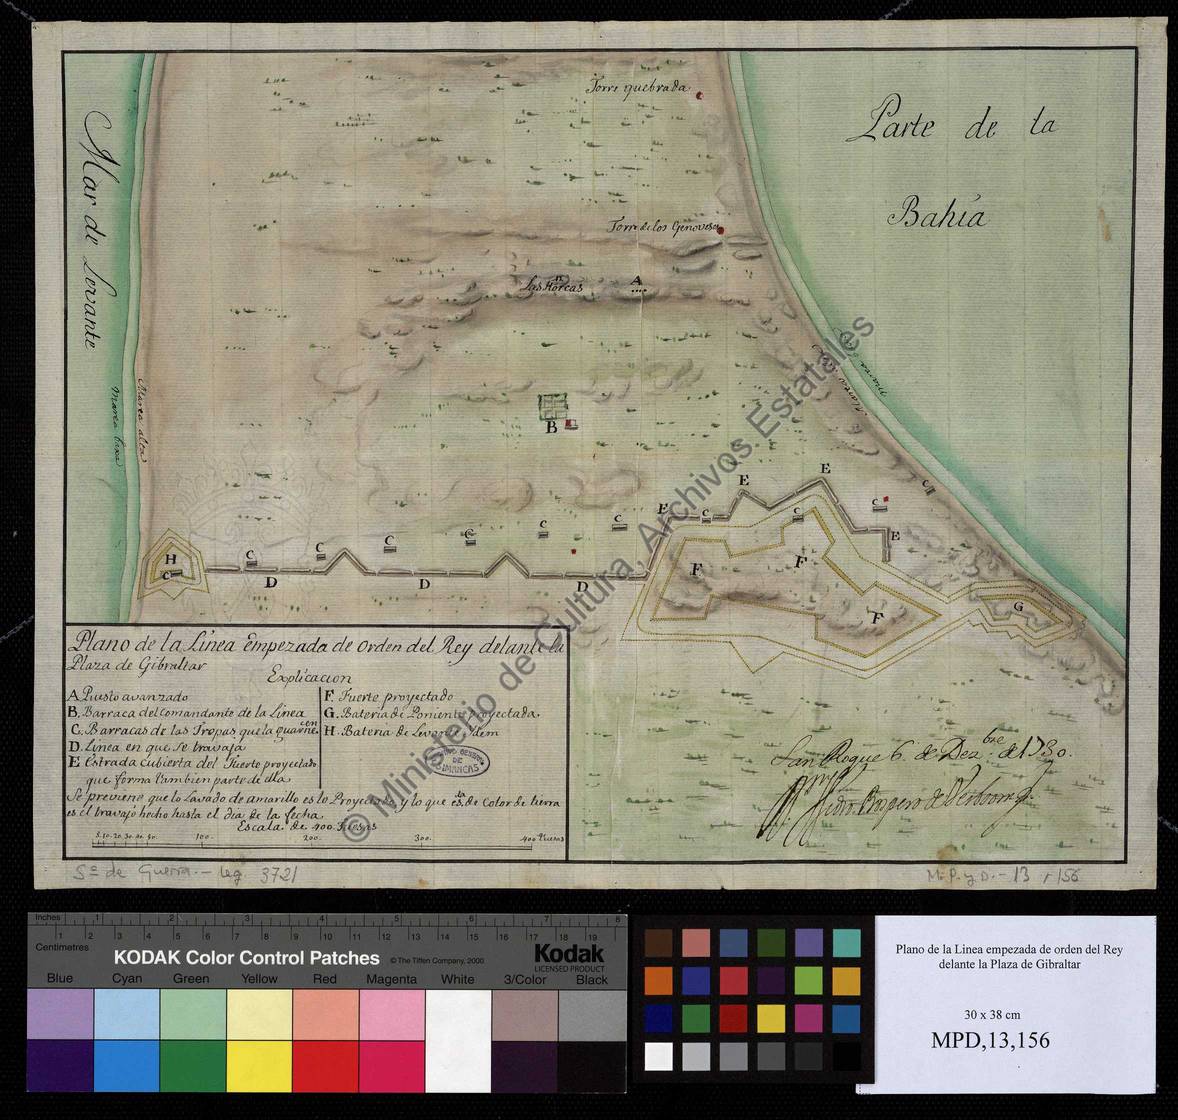 Torre quebrada
Parte de la
Bahia
Mar de Levante
Torre de los Genoveses
Las Horcas
A
Marea alta
Marea baxa
B
C
C
C
C
C
C
C
C
C
C
C
D
D
D
E
E
E
E
F
F
F
G
H
Plano de la Linea empezada de orden del Rey delante la
Plaza de Gibraltar
Explicacion
A Puesto avanzado
B. Barraca del Comandante de la Linea
C. Barracas de las Tropas que la guarnecen
D. Linea en que se travaja
E Estrada cubierta del Fuerte proyectado
que forma tambien parte de ella
F. Fuerte proyectado
G. Bateria de Poniente proyectada
H. Bateria de Levante Idem
Se previene que lo Lavado de amarillo es lo Proyectado, y lo que está de Color de tierra
es el travajo hecho hasta el dia de la fecha
Escala de 400 Tuesas
5. 10. 20. 30. 40. 50. 100. 200. 300. 400 Tuesas
San Roque 6. de Dezbre de 1730.
SIMANCAS
© Ministerio de Cultura, Archivos Estatales
Sª de Guerra.- Leg. 3721
M. P. y D. - 13 - 156
Inches 1 2 3 4 5 6 7 8
Centimetres 1 2 3 4 5 6 7 8 9 10 11 12 13 14 15 16 17 18 19
KODAK Color Control Patches © The Tiffen Company, 2000
Kodak
LICENSED PRODUCT
Blue Cyan Green Yellow Red Magenta White 3/Color Black
Plano de la Linea empezada de orden del Rey
delante la Plaza de Gibraltar
30 x 38 cm
MPD,13,156